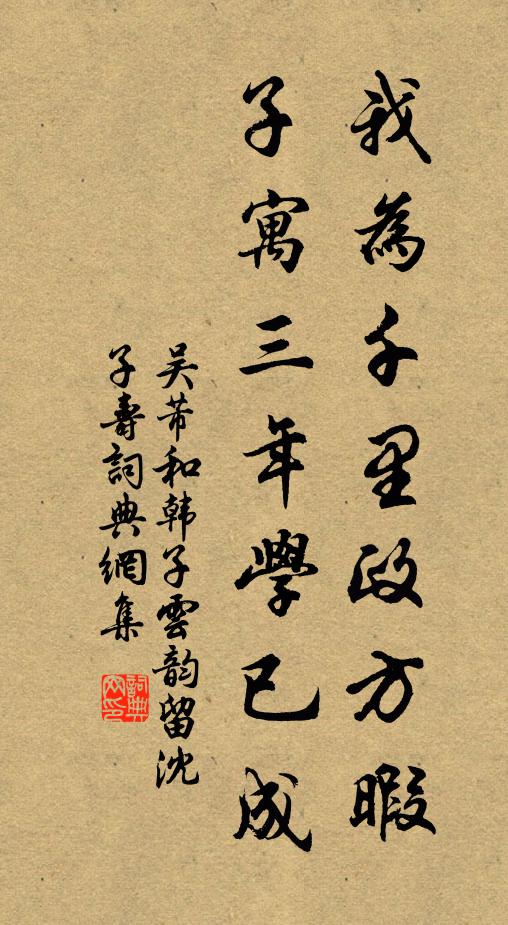 我為千里政方暇
子寓三年學已成
吴芾和韩子雲韵留沈
子壽詞典網集
詞典
文印